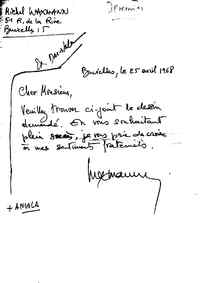 Michel WAXMANN
51 R. de la Rive
Bruxelles 15
Bruxelles, le 25 avril 1968
Cher Monsieur,
Veuillez trouver ci-joint le dessin
demandé. En vous souhaitant
plein succès, je vous prie de croire
à mes sentiments fraternels.
+ ANGOLA